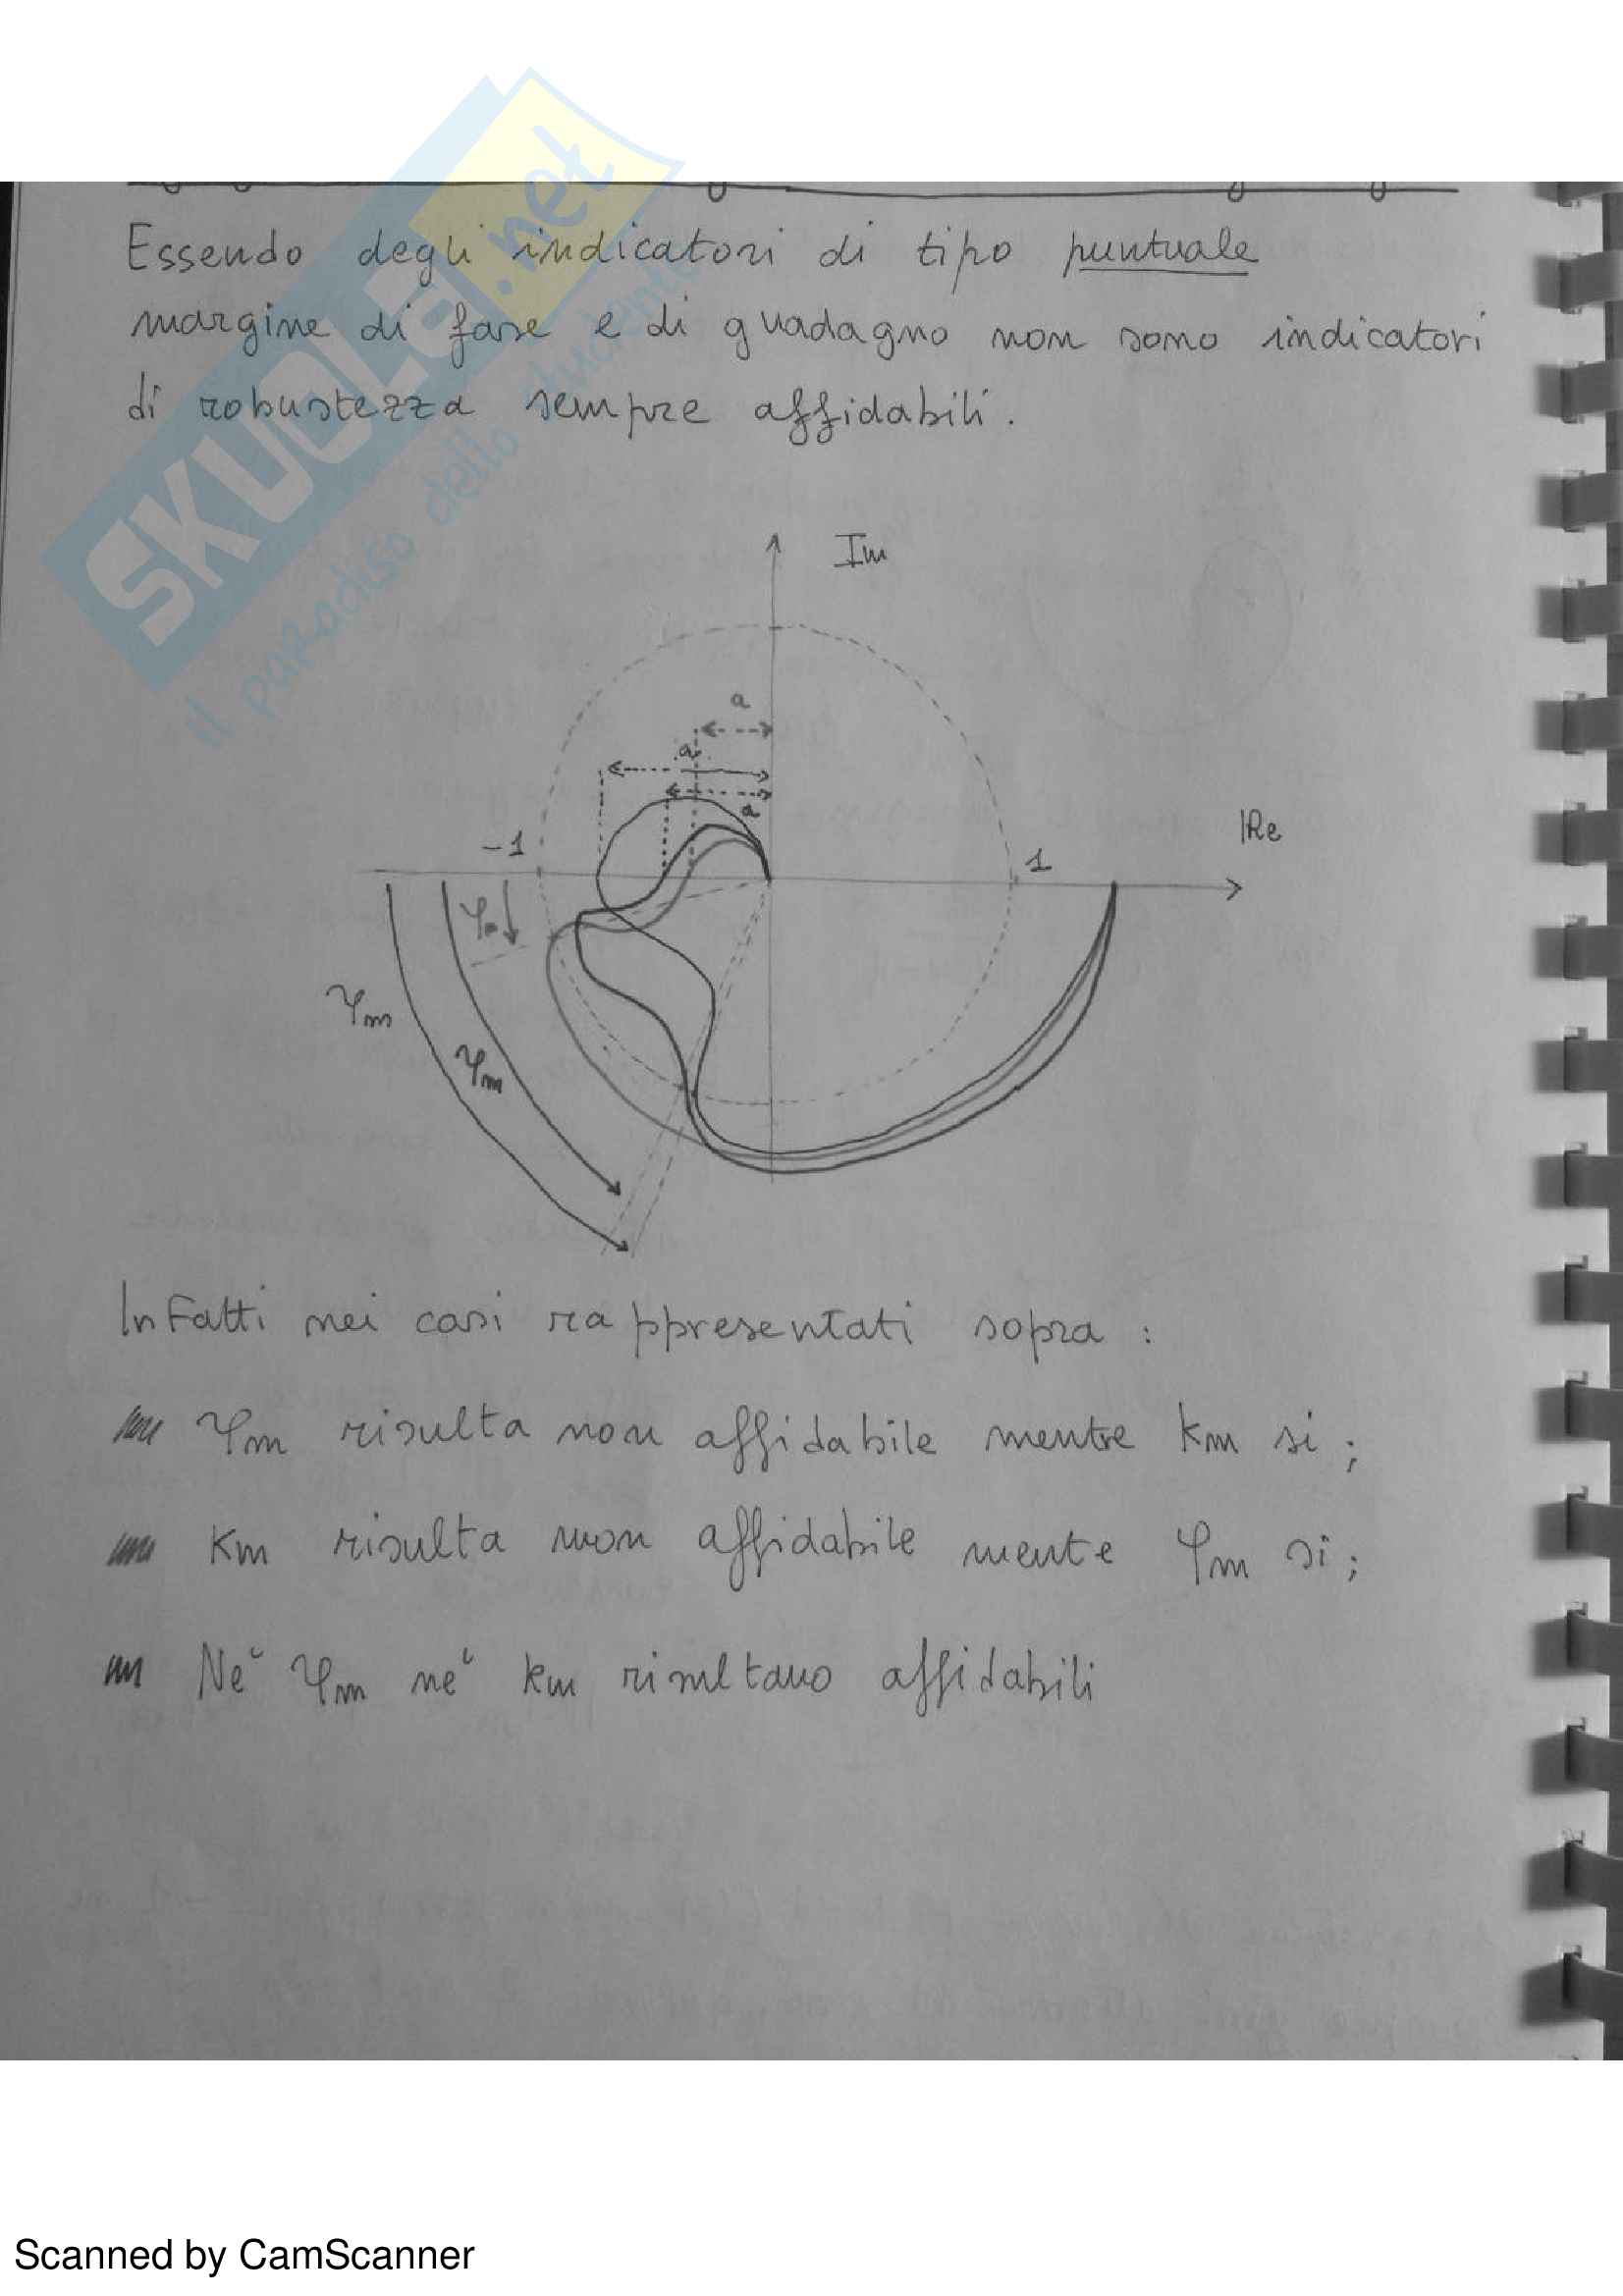 SKUOLA.net
il paradiso dello studente
Essendo degli indicatori di tipo puntuale
margine di fase e di guadagno non sono indicatori
di robustezza sempre affidabili.
Im
a
a
a
Re
-1
1
φm
φm
φm
Infatti nei casi rappresentati sopra :
φm risulta non affidabile mentre km si ;
Km risulta non affidabile mente φm si ;
Nè φm nè km risultano affidabili
Scanned by CamScanner